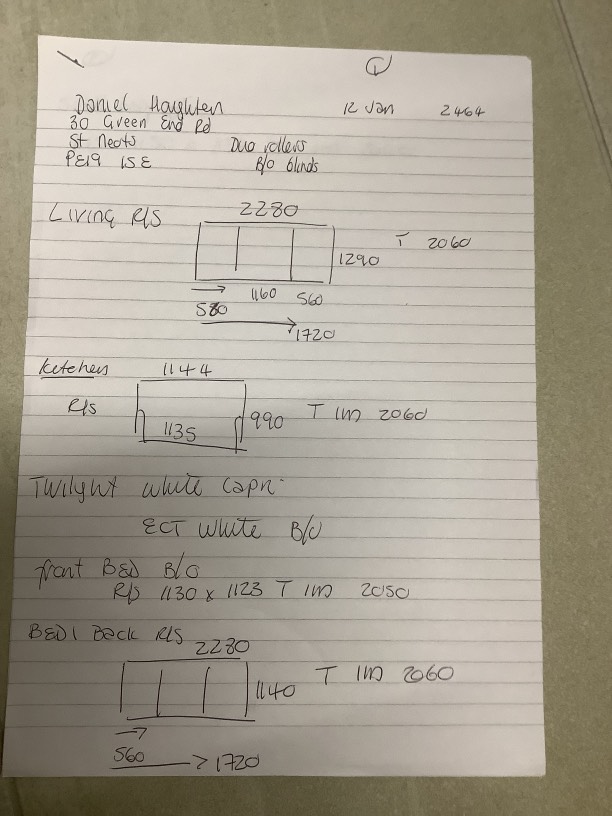 1
Daniel Haughten 12 Jan 2464
30 Green End Rd
St Neots Duo rollers
PE19 1SE B/O blinds
Living R/S 2280
1290 T 2060
580 1160 560
1720
Kitchen 1144
R/S 1135 990 T 1m 2060
Twilight white Capri
ECT white B/O
front BED B/O
R/S 1130 x 1123 T 1m 2050
BED 1 Back R/S
2280
1140 T 1m 2060
560 1720